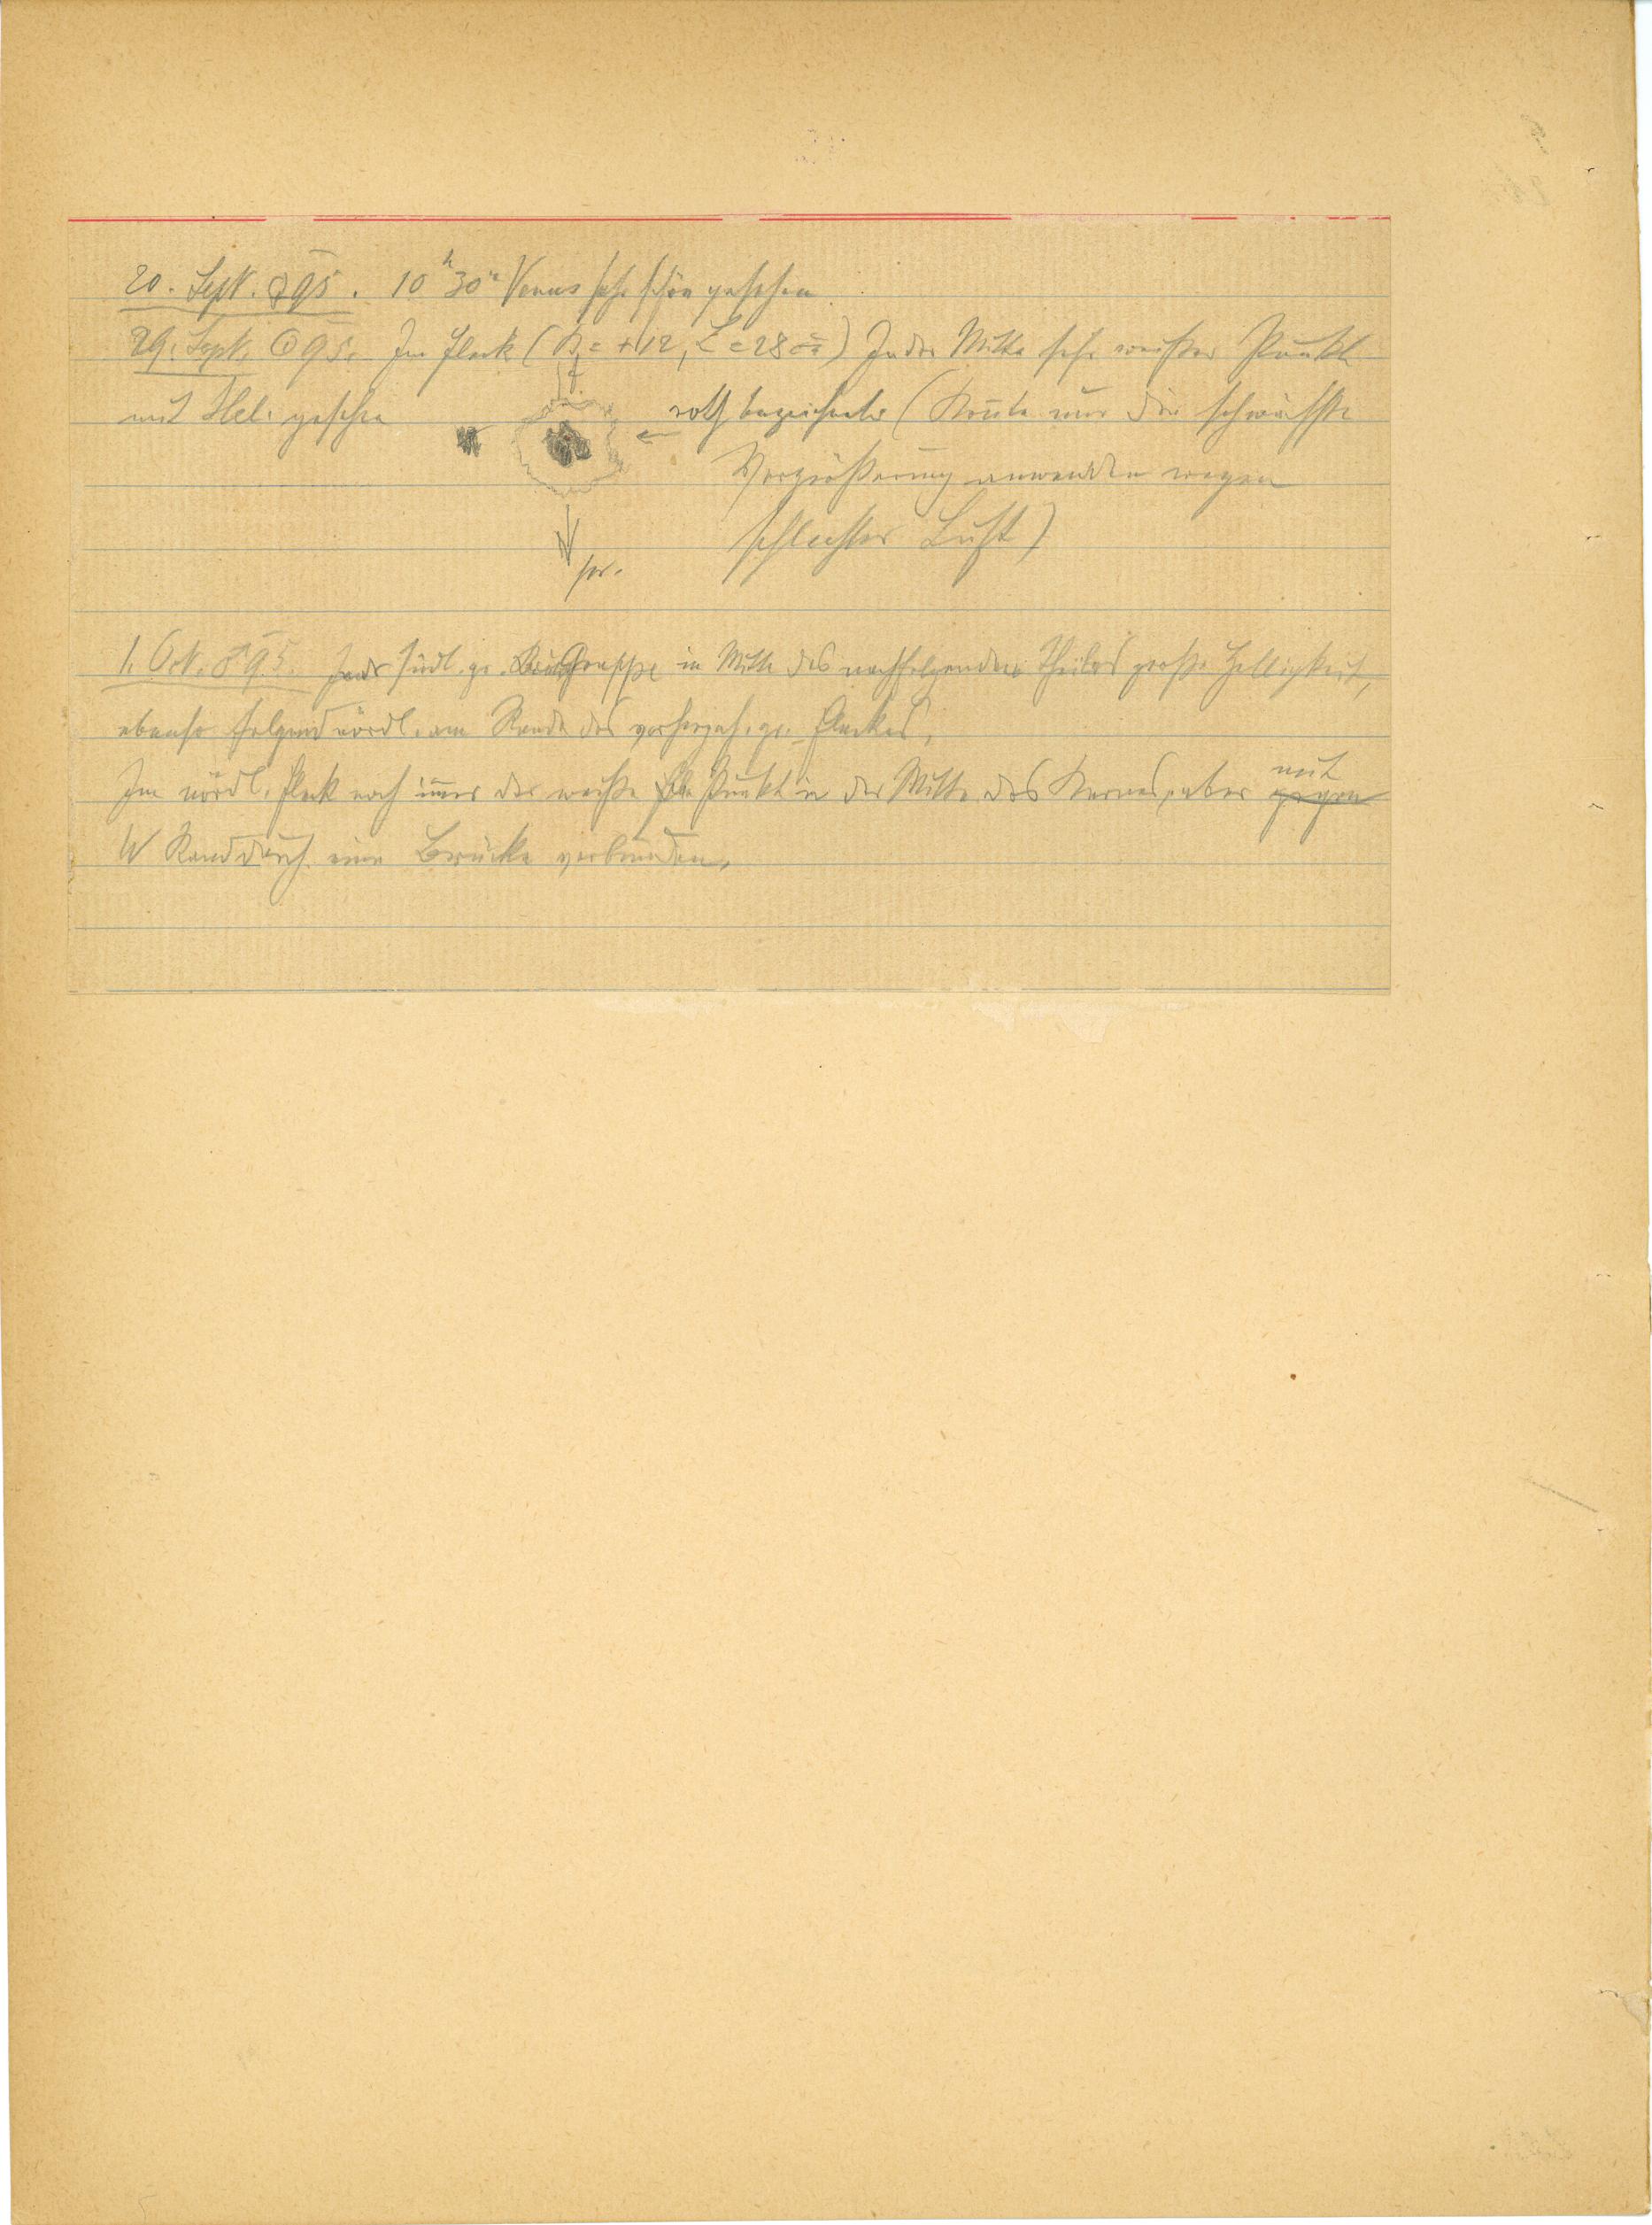 20. Sept. ♀ 95. 10ʰ 30ᵐ Venus sehr schön gesehen
29. Sept. ☉ 95. Im Fleck (B = +12, L = 28) In der Mitte sehr weißer Punkt
mit Hel. gesehen ← roth bezeichnete (Konnte nur die schwächste
Vergrößerung anwenden wegen
schlechter Luft)
1. Oct. ♂ 95. In der südl. gr. Gruppe in Mitte des nachfolgenden Theiles große Helligkeit,
ebenso folgend nördl. am Rande des gr. Fleckes,
Im nördl. Fleck noch immer der weiße Punkt in der Mitte des Kernes, aber gegen mit
W Rand durch eine Brücke verbunden.